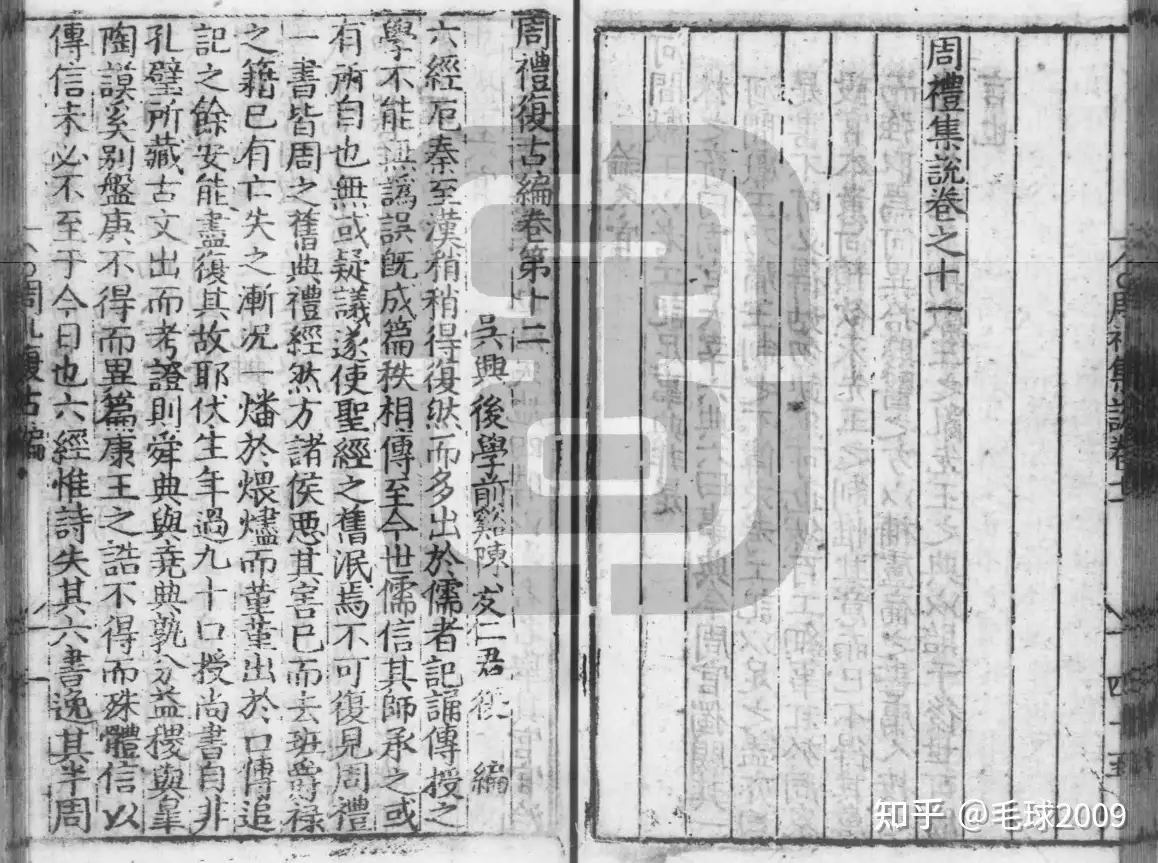 周禮集說卷之十一
周禮復古編卷第十二
吳興後學前谿陳友仁君復編
六經厄秦至漢稍稍得復然而多出於儒者記誦傳授之
學不能無譌誤旣成篇秩相傳至今世儒信其師承之或
有所自也無或疑議遂使聖經之舊泯焉不可復見周禮
一書皆周之舊典禮經然方諸侯惡其害已而去班爵祿
之籍已有亡失之漸况一燔於煨燼而堇堇出於口傳追
記之餘安能盡復其故耶伏生年過九十口授尚書自非
孔壁所藏古文出而考證則舜典與堯典孰分益稷與臯
陶謨奚別盤庚不得而異篇康王之誥不得而殊體信以
傳信未必不至于今日也六經惟詩失其六書逸其半周
周禮集說卷十一
四十五
周禮復古編
一
知乎 @毛球2009